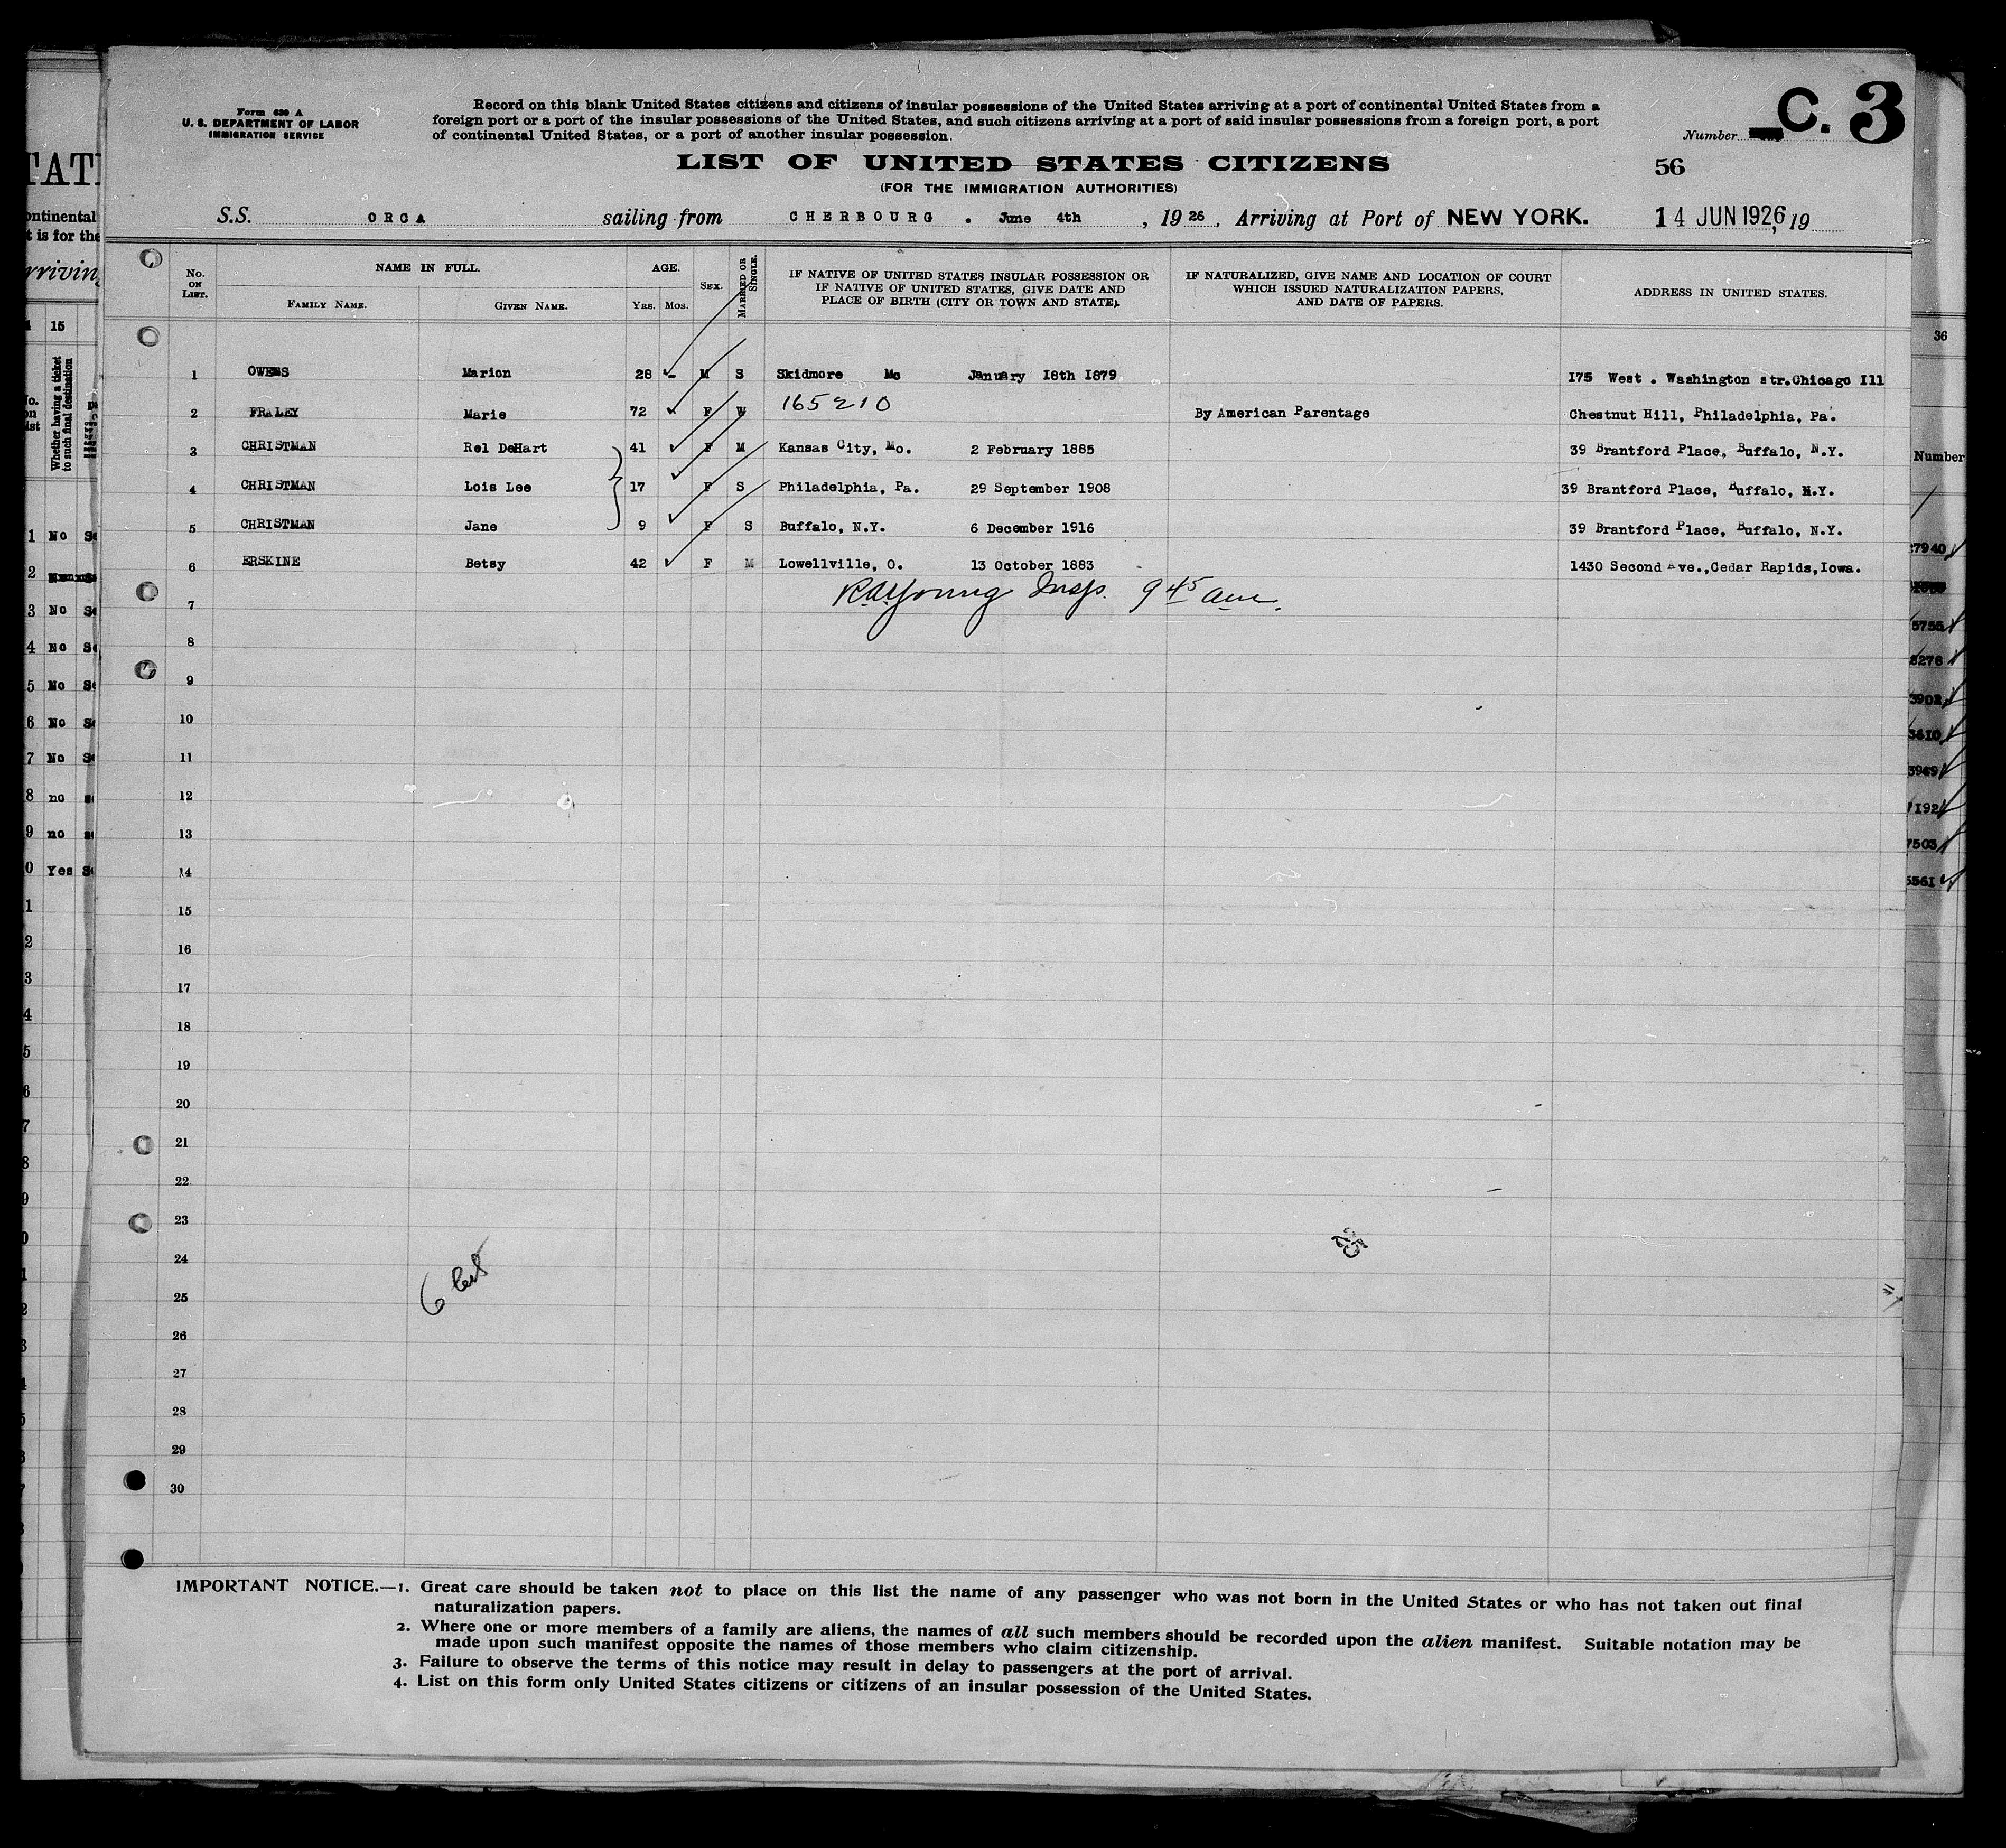 Form 630 A
U. S. DEPARTMENT OF LABOR
IMMIGRATION SERVICE
Record on this blank United States citizens and citizens of insular possessions of the United States arriving at a port of continental United States from a
foreign port or a port of the insular possessions of the United States, and such citizens arriving at a port of said insular possessions from a foreign port, a port
of continental United States, or a port of another insular possession.
Number C. 3
LIST OF UNITED STATES CITIZENS
56
(FOR THE IMMIGRATION AUTHORITIES)
S.S. ORCA sailing from CHERBOURG . June 4th , 19 26 , Arriving at Port of NEW YORK. 14 JUN 1926, 19
No. ON LIST. NAME IN FULL. FAMILY NAME. GIVEN NAME. AGE. YRS. MOS. SEX. MARRIED OR SINGLE. IF NATIVE OF UNITED STATES INSULAR POSSESSION OR IF NATIVE OF UNITED STATES, GIVE DATE AND PLACE OF BIRTH (CITY OR TOWN AND STATE). IF NATURALIZED, GIVE NAME AND LOCATION OF COURT WHICH ISSUED NATURALIZATION PAPERS, AND DATE OF PAPERS. ADDRESS IN UNITED STATES.
1 OWENS Marion 28 - M S Skidmore Mo January 18th 1879 175 West . Washington str.Chicago Ill
2 FRALEY Marie 72 F W 165210 By American Parentage Chestnut Hill, Philadelphia, Pa.
3 CHRISTMAN Rel DeHart 41 F M Kansas City, Mo. 2 February 1885 39 Brantford Place, Buffalo, N.Y.
4 CHRISTMAN Lois Lee 17 F S Philadelphia, Pa. 29 September 1908 39 Brantford Place, Buffalo, N.Y.
5 CHRISTMAN Jane 9 F S Buffalo, N.Y. 6 December 1916 39 Brantford Place, Buffalo, N.Y.
6 ERSKINE Betsy 42 F M Lowellville, O. 13 October 1883 1430 Second Ave.,Cedar Rapids,Iowa.
7 Young Insp. 9 45 am.
8
9
10
11
12
13
14
15
16
17
18
19
20
21
22
23
24
25
26
27
28
29
30
IMPORTANT NOTICE.—1. Great care should be taken not to place on this list the name of any passenger who was not born in the United States or who has not taken out final
naturalization papers.
2. Where one or more members of a family are aliens, the names of all such members should be recorded upon the alien manifest. Suitable notation may be
made upon such manifest opposite the names of those members who claim citizenship.
3. Failure to observe the terms of this notice may result in delay to passengers at the port of arrival.
4. List on this form only United States citizens or citizens of an insular possession of the United States.